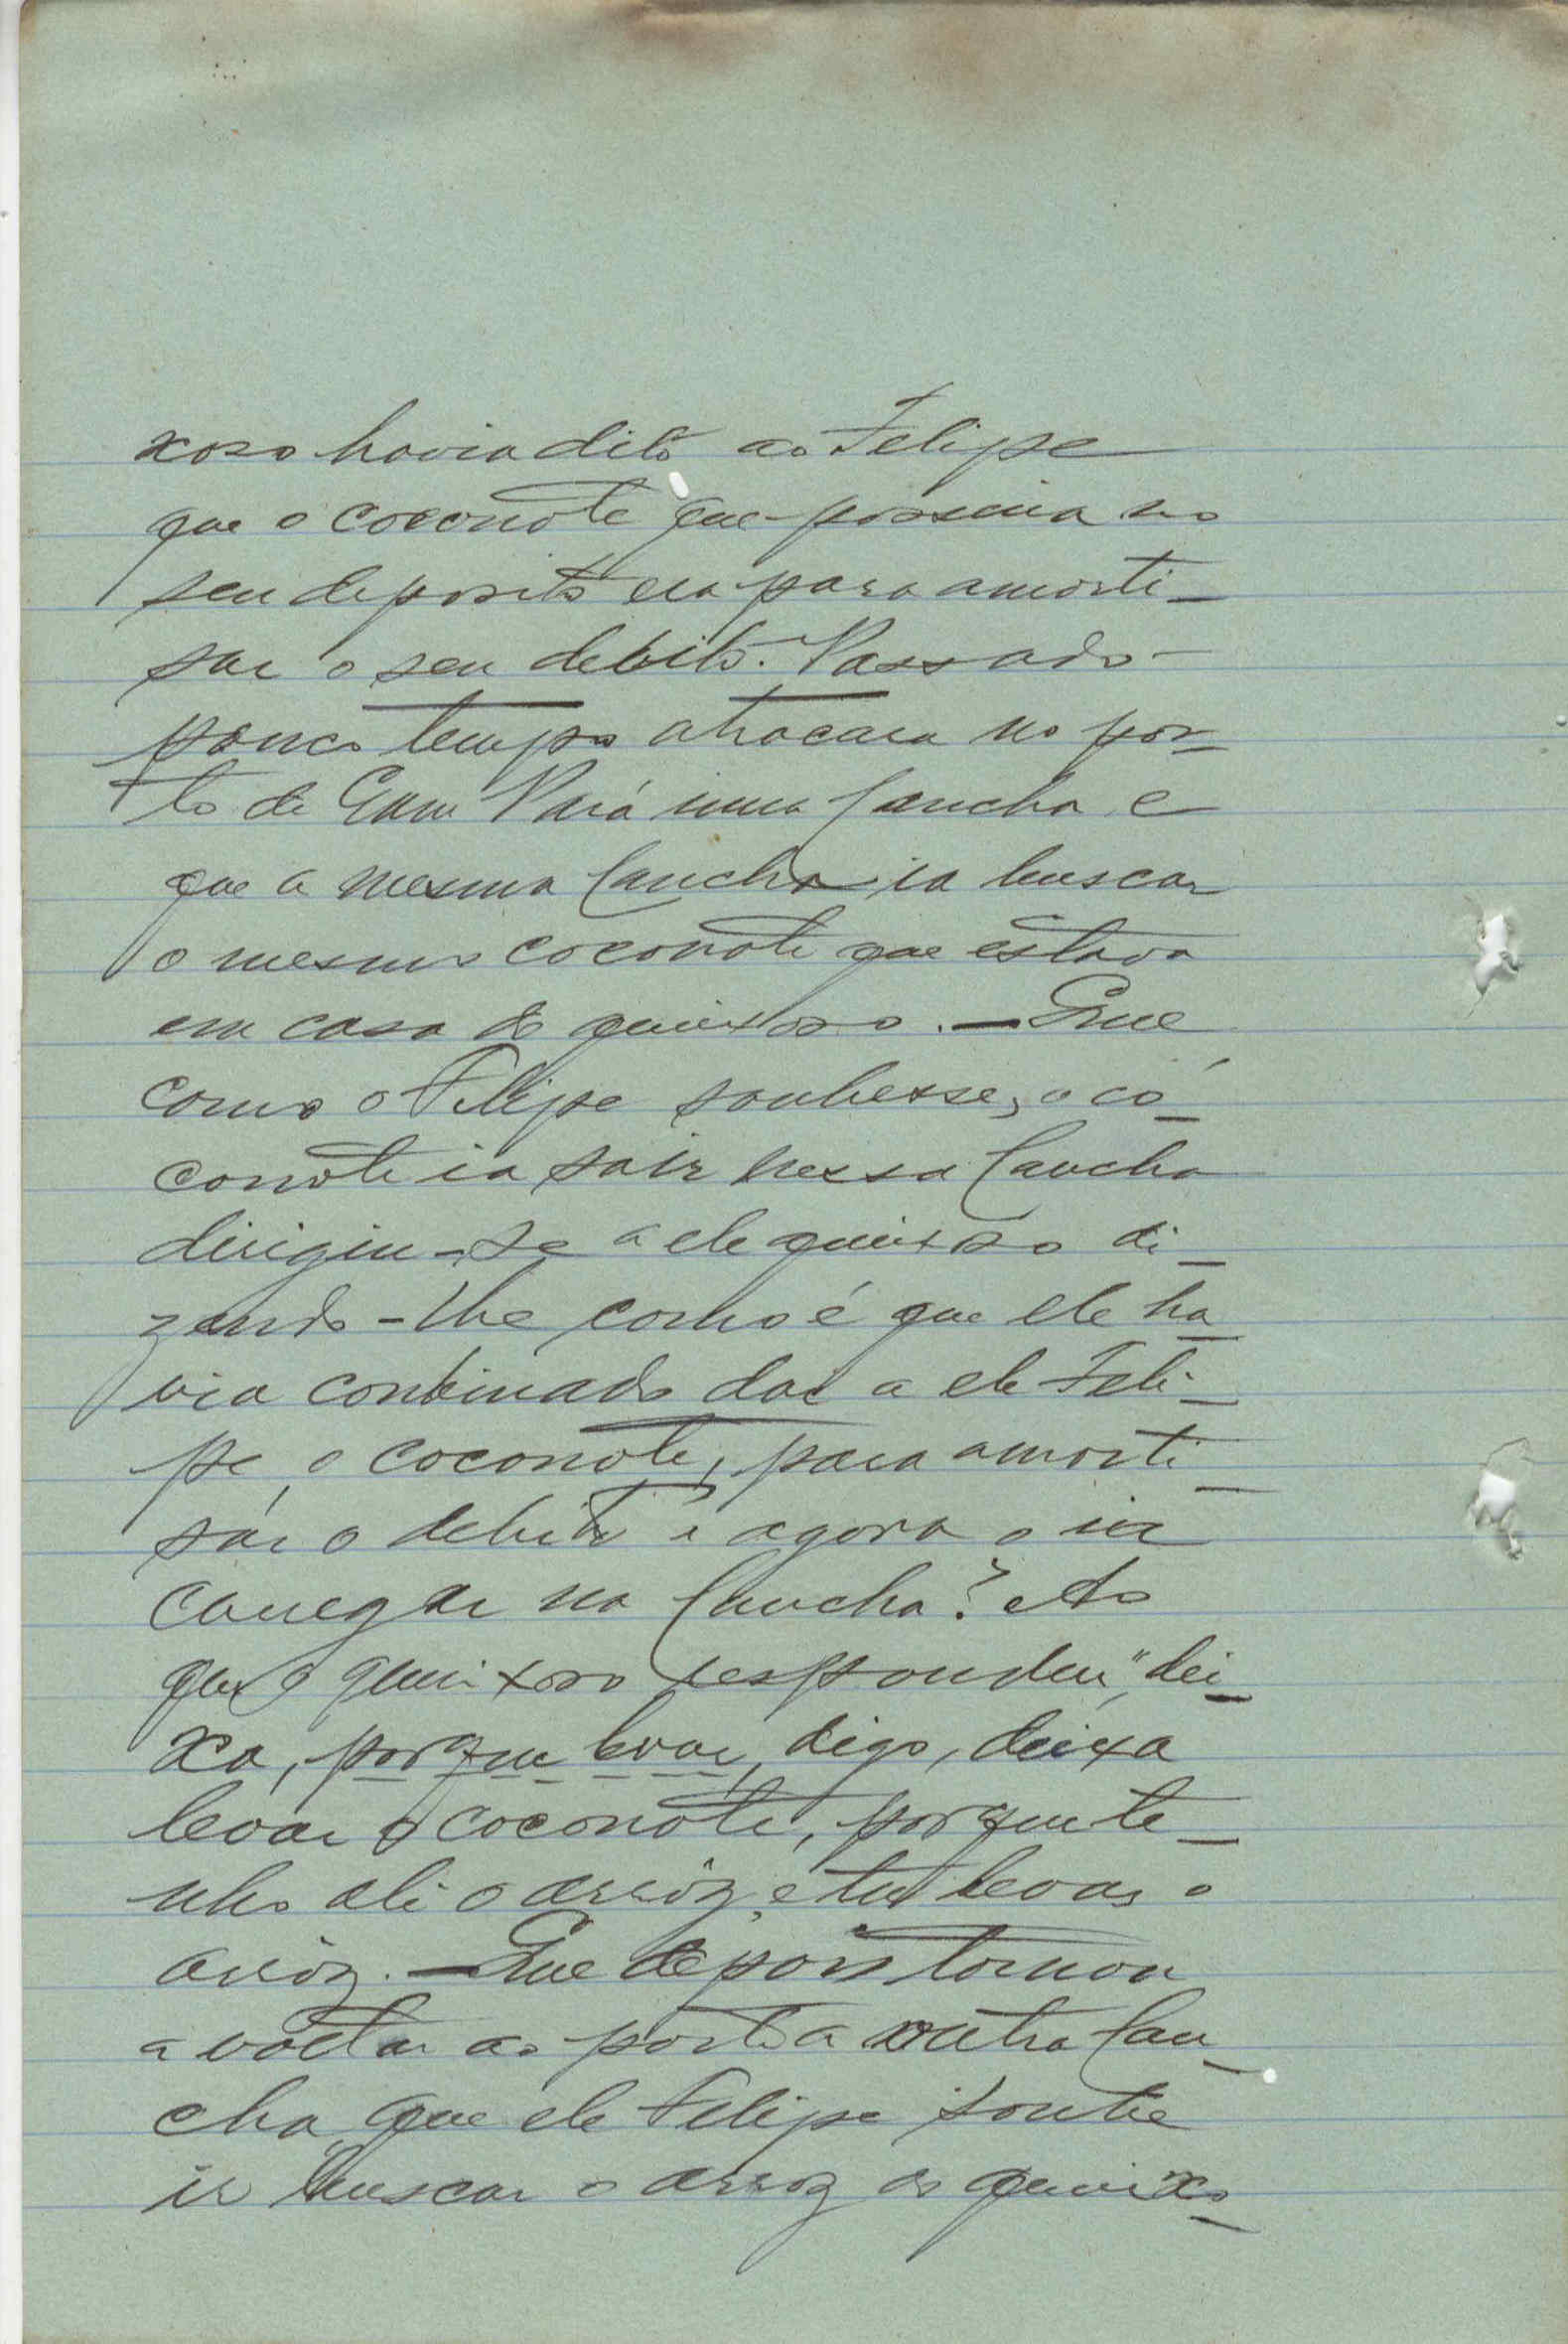 xoso havia dito ao Felipe
que o coconote que possuia no
seu deposito era para amorti-
sar o seu debito. Passado
pouco tempo atracara no por-
to de Gram Pará uma lancha e
que a mesma lancha ia buscar
o mesmo coconote que estava
em casa do queixoso. — Que
como o Felipe soubesse, o cô-
conote ia sair nessa lancha
dirigiu-se a ele queixoso di-
zendo-lhe como é que ele ha-
via combinado dar a ele Feli-
pe, o coconote, para amorti-
sar o debito e agora o ia
carregar na lancha? Ao
que o queixoso respondeu, "dei-
xa, porque levar, digo, deixa
levar o coconote, porque te-
nho ali o arrôz, e tu levas o
arrôz. — Que depois tornou
a voltar ao porto a outra lan-
cha que ele Felipe soube
ir buscar o arroz do queixo-